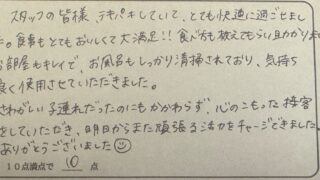 スタッフの皆様、テキパキしていて、とても快適に過ごせまし
た。食事もとてもおいしくて大満足!! 食べ方も教えてもらい助かりま
お部屋もキレイで、お風呂もしっかり清掃されており、気持ち
良く使用させていただきました。
さわがしい子連れだったのにもかかわらず、心のこもった接客
をしていただき、明日からまた頑張る活力をチャージできました。
ありがとうございました☺
10点満点で 10 点